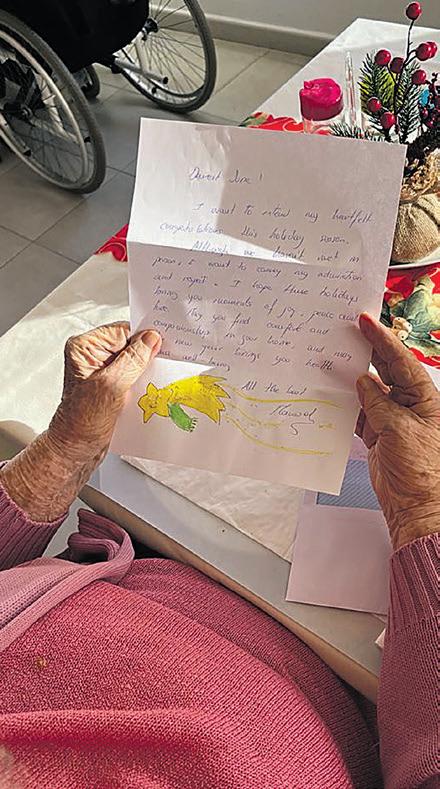 Dearest June!
I want to extend my heartfelt
congratulations this holiday season.
Although we haven't met in
person, I want to convey my admiration
and respect. I hope these holidays
bring you moments of joy, peace and
love. May you find comfort and
companionship in your home, and may
new year brings you health
and well being
All the best